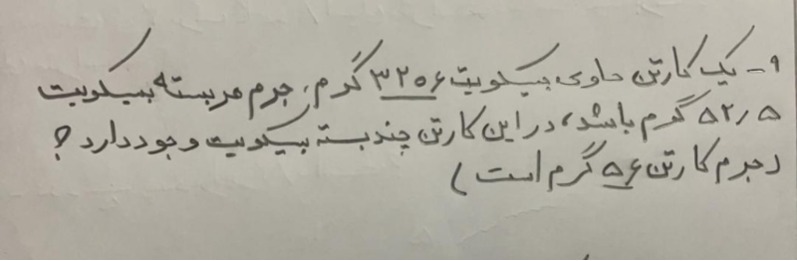 ۹- یک کارتن حاوی بیسکویت ۳۲۵۶ گرم، جرم هر بسته بیسکویت
۵۲/۵ گرم باشد، در این کارتن چند بسته بیسکویت وجود دارد؟
(جرم کارتن ۵۶ گرم است)